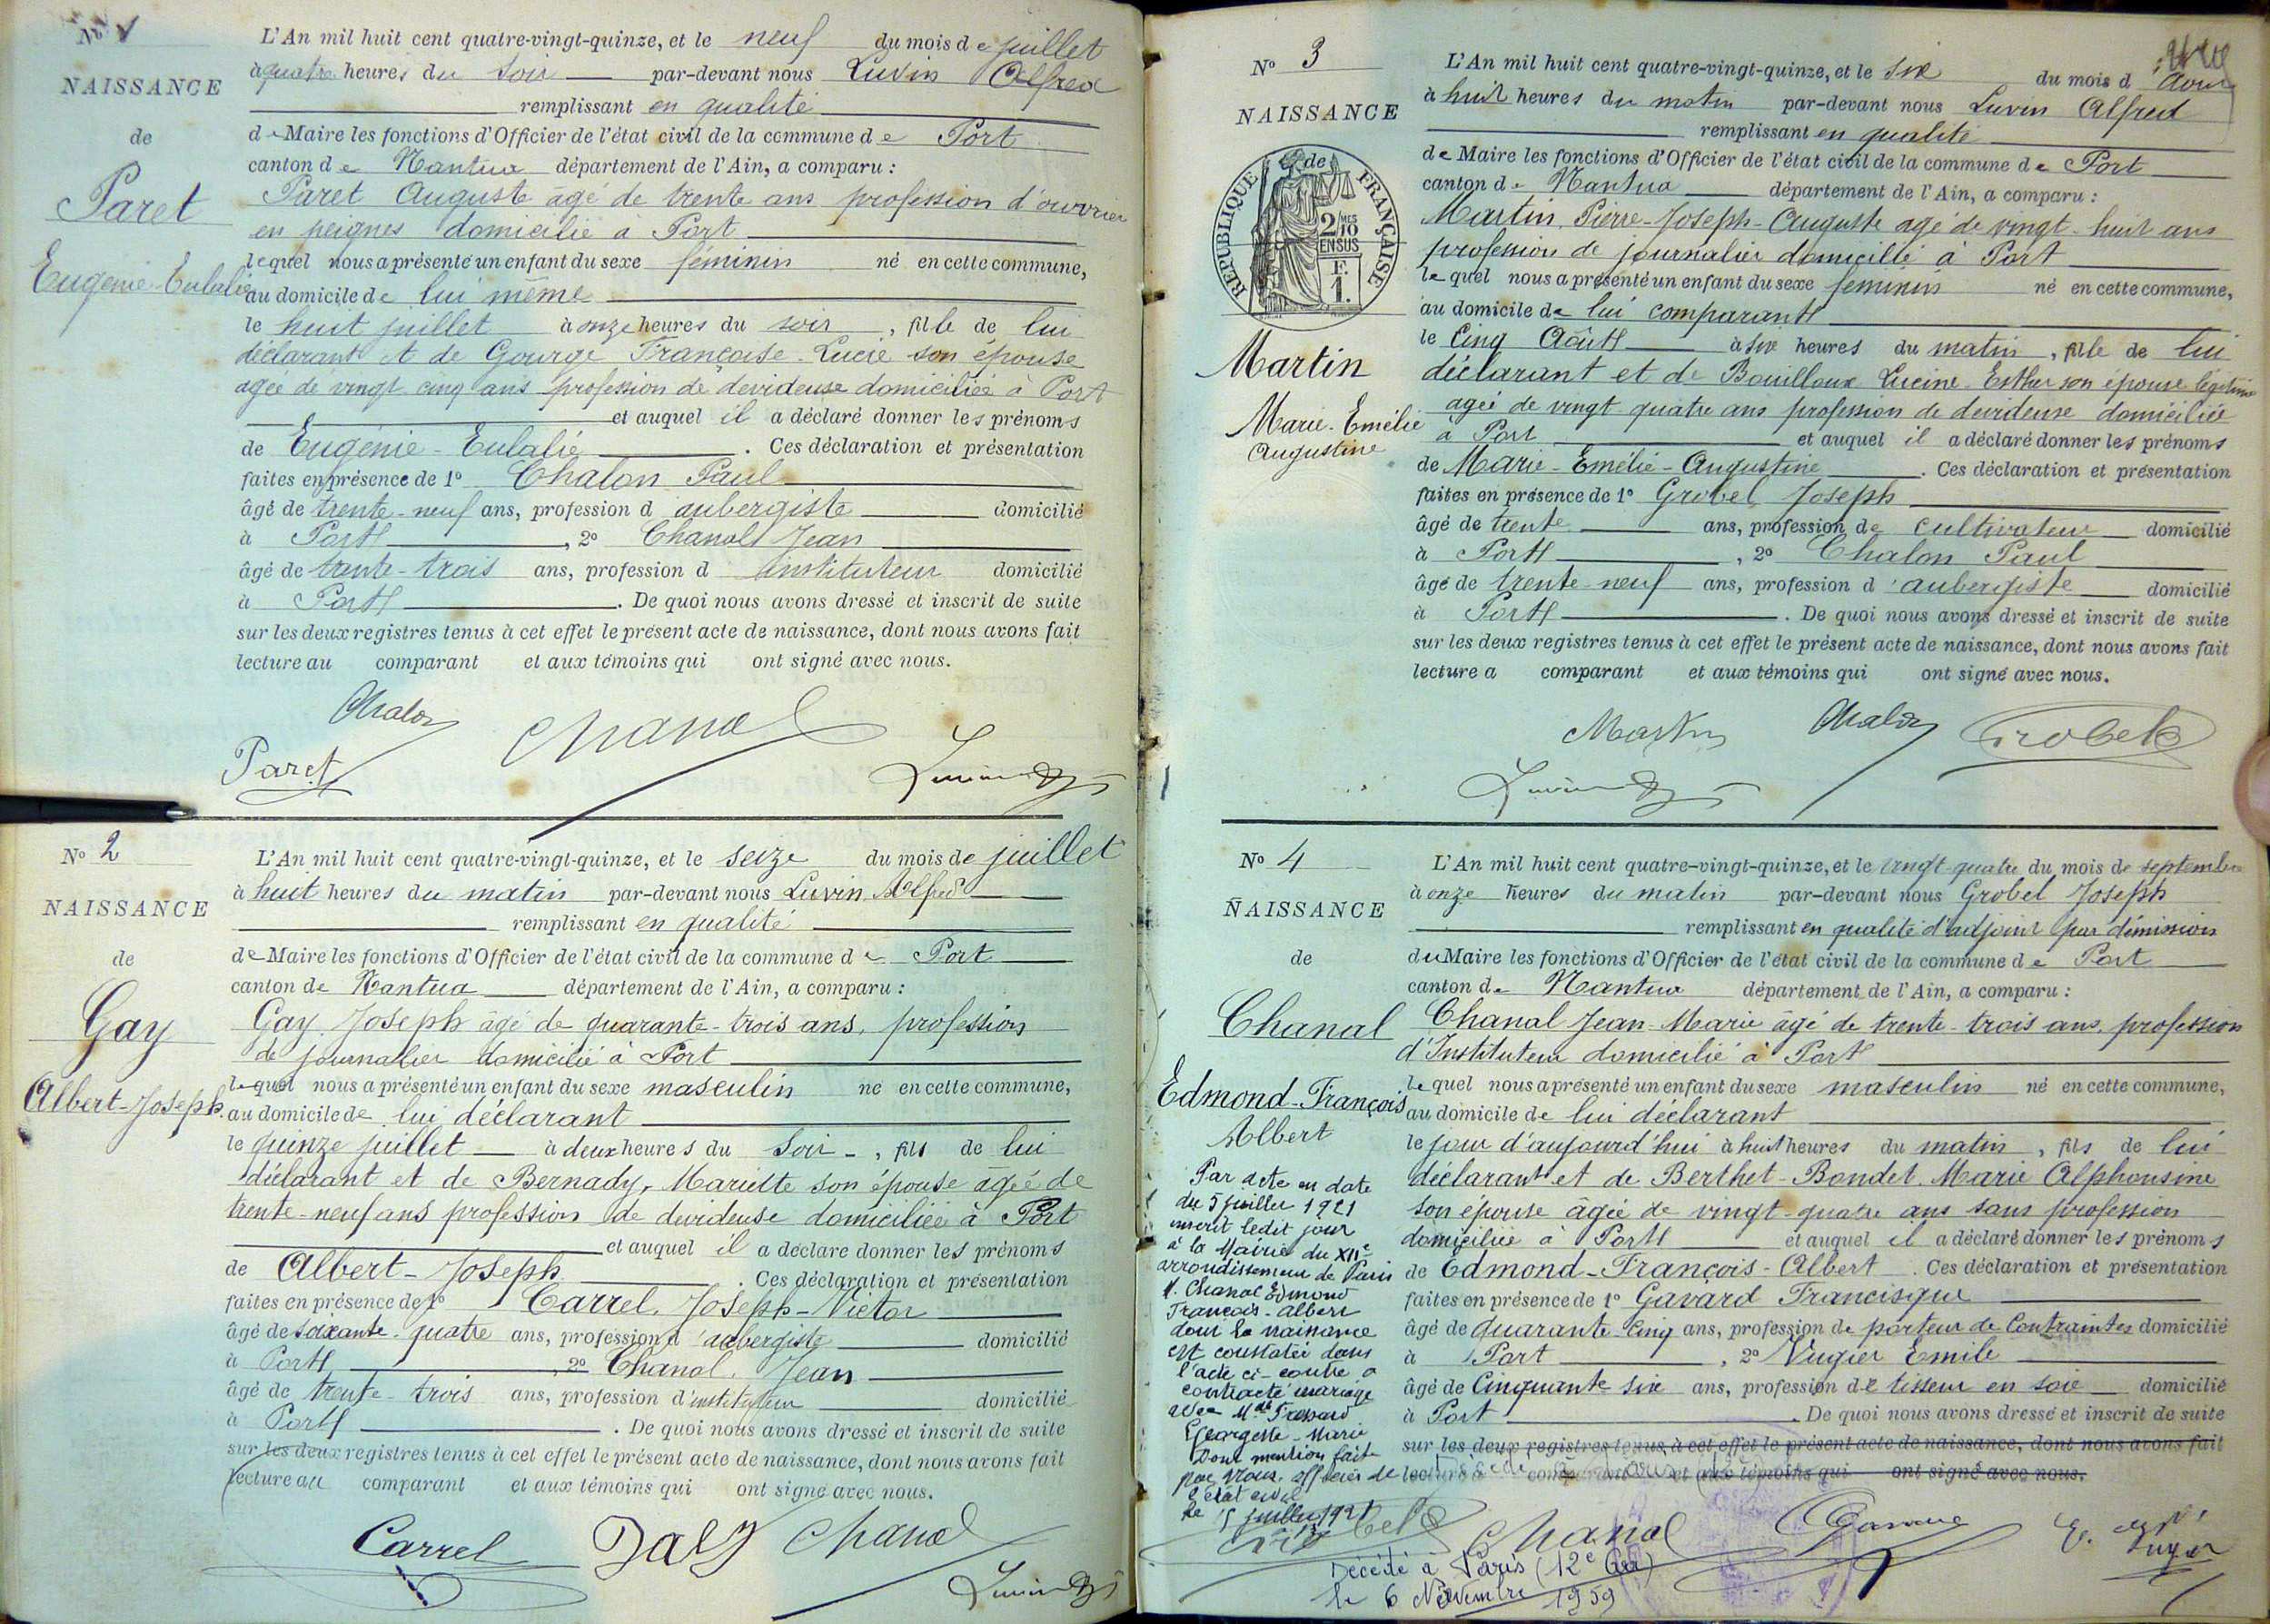 No 1
NAISSANCE
de
Paret
Eugénie-Eulalie
L'An mil huit cent quatre-vingt-quinze, et le neuf du mois de juillet
à quatre heures du soir par-devant nous Luvin Alfred
remplissant en qualité
de Maire les fonctions d'Officier de l'état civil de la commune de Port
canton de Nantua département de l'Ain, a comparu :
Paret Auguste âgé de trente ans profession d'ouvrier
en peignes domicilié à Port
lequel nous a présenté un enfant du sexe féminin né en cette commune,
au domicile de lui même
le huit juillet à onze heures du soir, fille de lui
déclarant et de Gourge Françoise-Lucie son épouse
agée de vingt cinq ans profession de devideuse domiciliée à Port
et auquel il a déclaré donner les prénoms
de Eugénie-Eulalie. Ces déclaration et présentation
faites en présence de 1° Chalon Paul
âgé de trente-neuf ans, profession d'aubergiste domicilié
à Port, 2° Chanal Jean
âgé de trente-trois ans, profession d'instituteur domicilié
à Port. De quoi nous avons dressé et inscrit de suite
sur les deux registres tenus à cet effet le présent acte de naissance, dont nous avons fait
lecture au comparant et aux témoins qui ont signé avec nous.
Chalon
Chanal
Paret
Luvin
No 2
NAISSANCE
de
Gay
Albert-Joseph.
L'An mil huit cent quatre-vingt-quinze, et le seize du mois de juillet
à huit heures du matin par-devant nous Luvin Alfred
remplissant en qualité
de Maire les fonctions d'Officier de l'état civil de la commune de Port
canton de Nantua département de l'Ain, a comparu :
Gay Joseph âgé de quarante-trois ans, profession
de journalier domicilié à Port
lequel nous a présenté un enfant du sexe masculin né en cette commune,
au domicile de lui déclarant
le quinze juillet à deux heures du soir, fils de lui
déclarant et de Bernady, Mariette son épouse âgée de
trente-neuf ans profession de devideuse domiciliée à Port
et auquel il a déclaré donner les prénoms
de Albert-Joseph. Ces déclaration et présentation
faites en présence de 1° Carrel, Joseph-Victor
âgé de soixante-quatre ans, profession d'aubergiste domicilié
à Port, 2° Chanal, Jean
âgé de trente-trois ans, profession d'instituteur domicilié
à Port. De quoi nous avons dressé et inscrit de suite
sur les deux registres tenus à cet effet le présent acte de naissance, dont nous avons fait
lecture au comparant et aux témoins qui ont signé avec nous.
Carrel
Chanal
Luvin
No 3
NAISSANCE
de
RÉPUBLIQUE FRANÇAISE
2/10 MES
EN SUS
F.
1.
Martin
Marie-Emélie
Augustine
L'An mil huit cent quatre-vingt-quinze, et le six du mois d'Aout
à huit heures du matin par-devant nous Luvin Alfred
remplissant en qualité
de Maire les fonctions d'Officier de l'état civil de la commune de Port
canton de Nantua département de l'Ain, a comparu :
Martin, Pierre-Joseph-Auguste agé de vingt-huit ans
profession de journalier domicilié à Port
lequel nous a présenté un enfant du sexe féminin né en cette commune,
au domicile de lui comparant
le Cinq Août à six heures du matin, fille de lui
déclarant et de Bouilloux Lucine-Esther son épouse légitime
agée de vingt-quatre ans profession de devideuse domiciliée
à Port et auquel il a déclaré donner les prénoms
de Marie-Emélie-Augustine. Ces déclaration et présentation
faites en présence de 1° Grobel Joseph
âgé de trente ans, profession de cultivateur domicilié
à Port, 2° Chalon Paul
âgé de trente-neuf ans, profession d'aubergiste domicilié
à Port. De quoi nous avons dressé et inscrit de suite
sur les deux registres tenus à cet effet le présent acte de naissance, dont nous avons fait
lecture a comparant et aux témoins qui ont signé avec nous.
Martin
Chalon
Grobel
Luvin
No 4
NAISSANCE
de
Chanal
Edmond-François
Albert
Par acte en date
du 5 juillet 1921
inscrit ledit jour
à la Mairie du XIIe
arrondissement de Paris
M. Chanal Edmond
François-Albert
dont la naissance
est constatée dans
l'acte ci-contre a
contracté mariage
avec Mlle
Georgette-Marie
Dont mention faite
par nous, officier de
l'état civil
le juillet 1921
L'An mil huit cent quatre-vingt-quinze, et le vingt quatre du mois de septembre
à onze heures du matin par-devant nous Grobel Joseph
remplissant en qualité d'adjoint par démission
du Maire les fonctions d'Officier de l'état civil de la commune de Port
canton de Nantua département de l'Ain, a comparu :
Chanal Jean-Marie âgé de trente-trois ans, profession
d'Instituteur domicilié à Port
lequel nous a présenté un enfant du sexe masculin né en cette commune,
au domicile de lui déclarant
le jour d'aujourd'hui à huit heures du matin, fils de lui
déclarant et de Berthet-Bondet, Marie Alphonsine
son épouse âgée de vingt-quatre ans sans profession
domiciliée à Port et auquel il a déclaré donner les prénoms
de Edmond-François-Albert. Ces déclaration et présentation
faites en présence de 1° Gavard Francisque
âgé de quarante-cinq ans, profession de porteur de Contraintes domicilié
à Port, 2° Vugier Emile
âgé de Cinquante six ans, profession de tisseur en soie domicilié
à Port. De quoi nous avons dressé et inscrit de suite
sur les deux registres tenus à cet effet le présent acte de naissance, dont nous avons fait
lecture a comparant et aux témoins qui ont signé avec nous.
Chanal
Décédé à Paris (12e Arr)
le 6 Novembre 1959